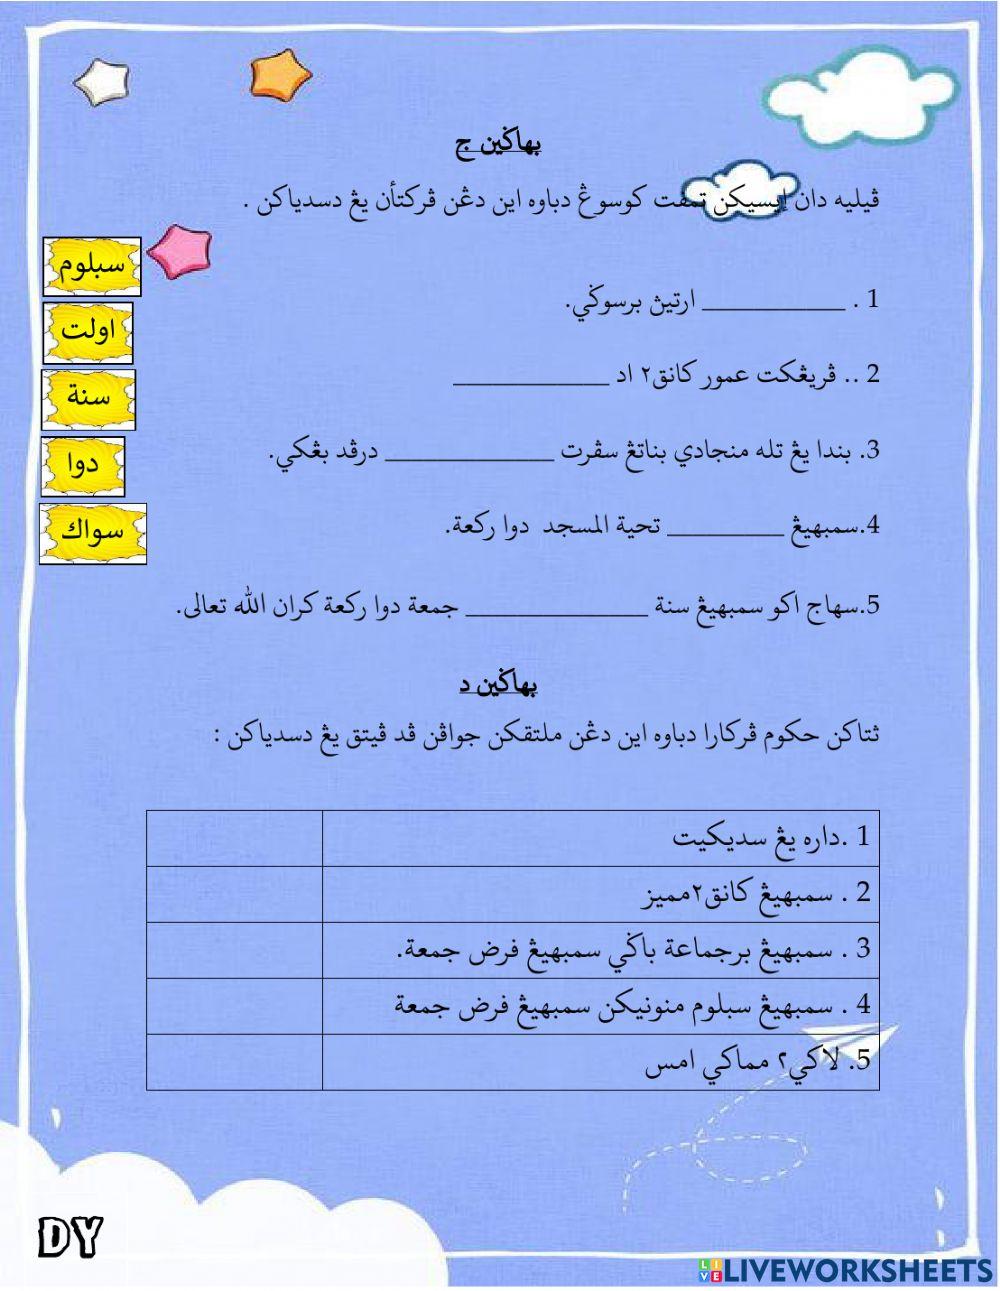 بهاݢين ج
ڤيليه دان إيسيكن تمڤت كوسوڠ دباوه اين دڠن ڤركتأن يڠ دسدياكن .
سبلوم
اولت
سنة
دوا
سواك
1 . ___________ ارتيڽ برسوݢي.
2 .. ڤريڠكت عمور كانق٢ اد ____________
3. بندا يڠ تله منجادي بناتڠ سڤرت _____________ درڤد بڠكي.
4.سمبهيڠ _________ تحية المسجد دوا ركعة.
5.سهاج اكو سمبهيڠ سنة ______________ جمعة دوا ركعة كران الله تعالى.
بهاݢين د
ثتاكن حكوم ڤركارا دباوه اين دڠن ملتقكن جواڤن ڤد ڤيتق يڠ دسدياكن :
1 .داره يڠ سديكيت
2 . سمبهيڠ كانق٢مميز
3 . سمبهيڠ برجماعة باݢي سمبهيڠ فرض جمعة.
4 . سمبهيڠ سبلوم منونيكن سمبهيڠ فرض جمعة
5. لاكي٢ مماكي امس
DY
LIVEWORKSHEETS